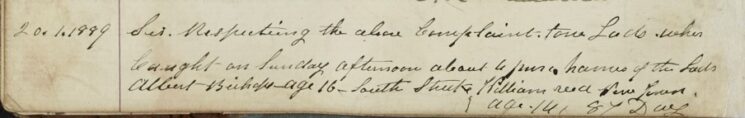 20.1.1889 Sir. Respecting the above Complaint. two Lads when
Caught on Sunday afternoon about 4 pm names of the Lads
Albert Bishop age 16 South Street William reed New Town
age 14